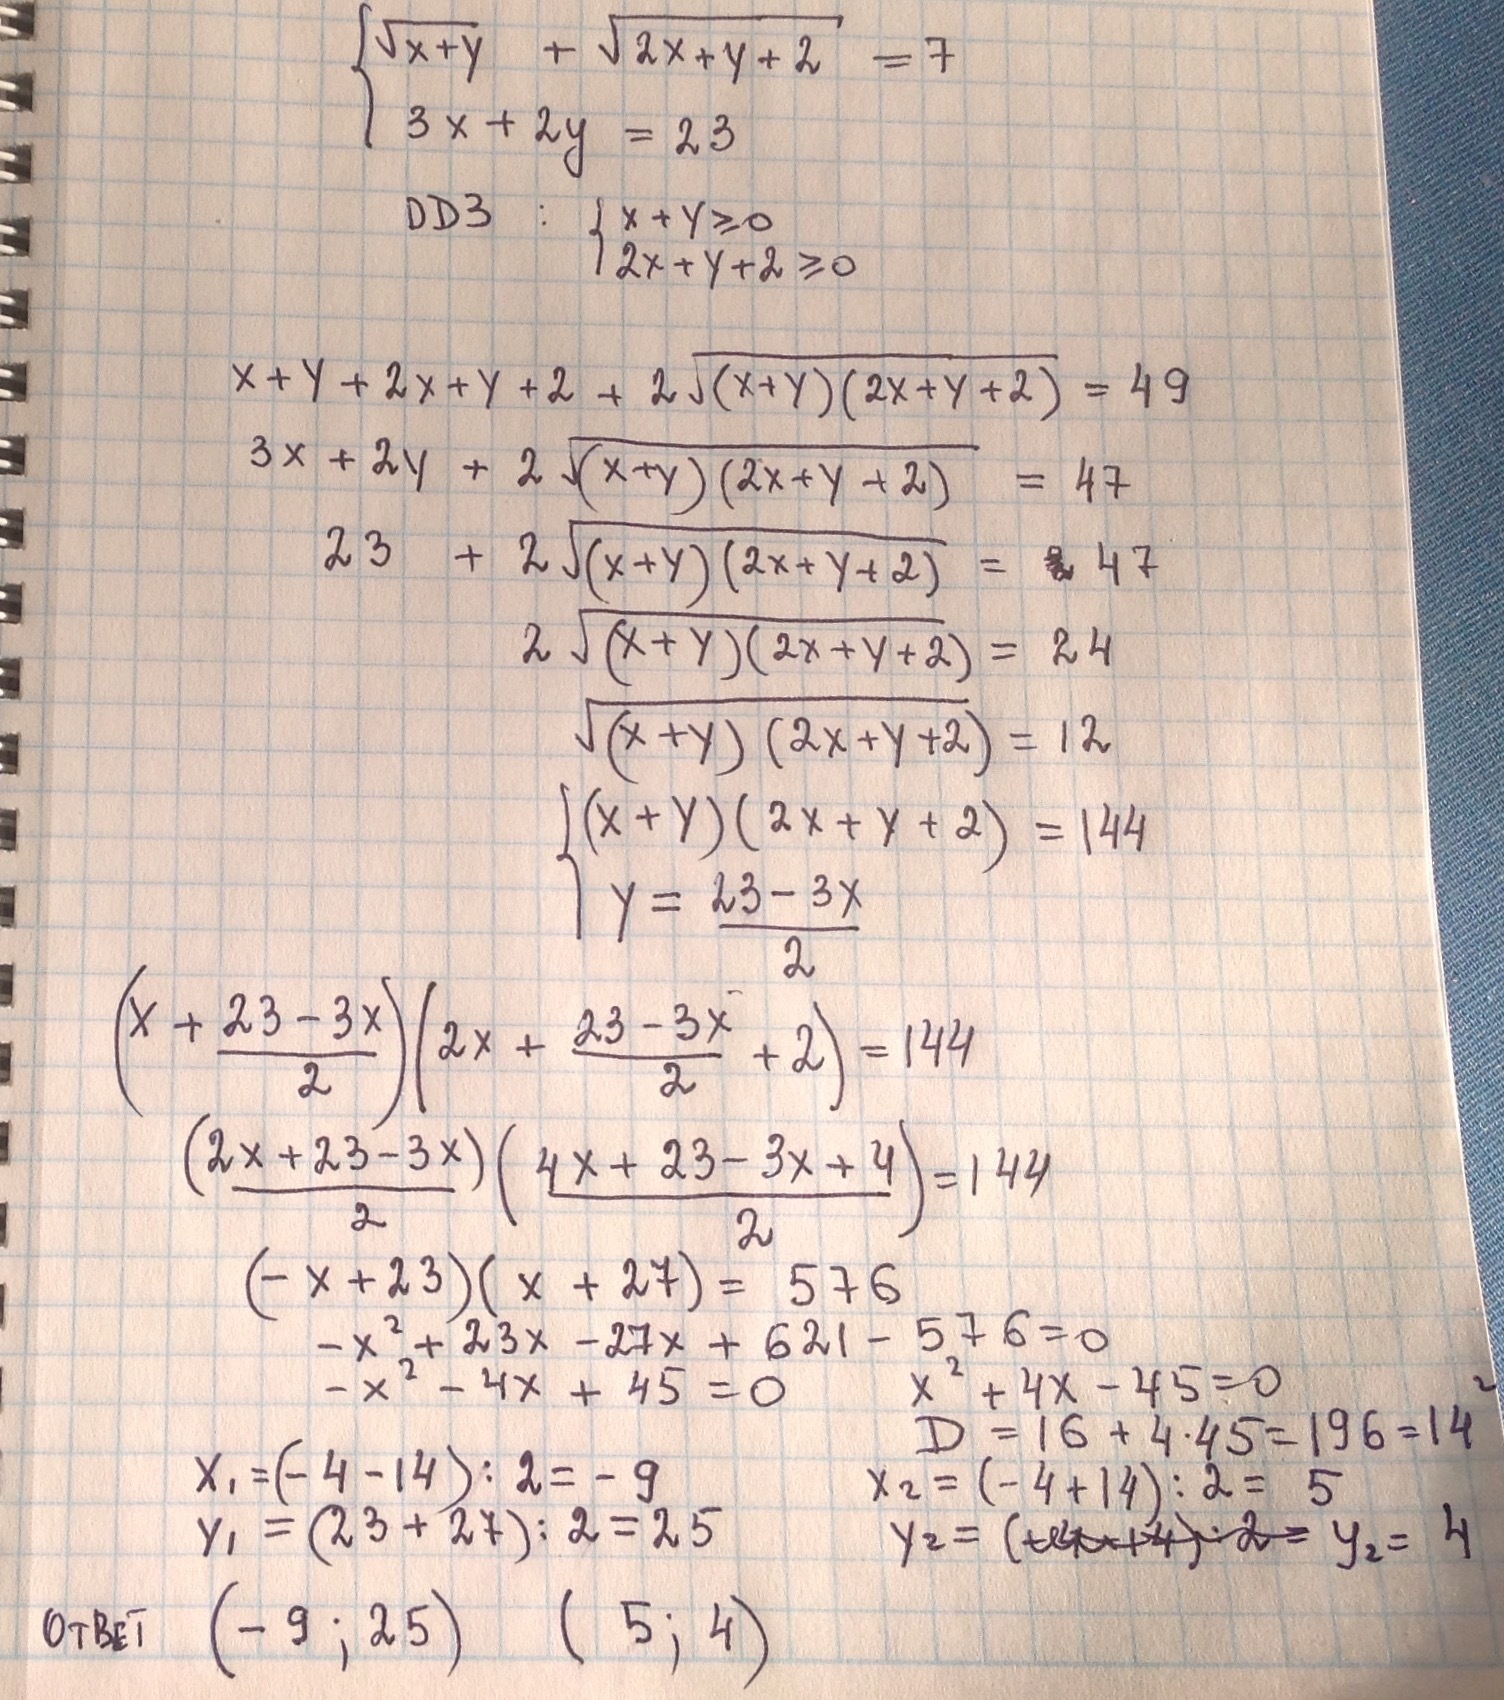 { √(x+y) + √(2x+y+2) = 7
3x + 2y = 23
ОДЗ : { x + y ≥ 0
2x + y + 2 ≥ 0
x + y + 2x + y + 2 + 2√((x+y)(2x+y+2)) = 49
3x + 2y + 2√((x+y)(2x+y+2)) = 47
23 + 2√((x+y)(2x+y+2)) = 47
2√((x+y)(2x+y+2)) = 24
√((x+y)(2x+y+2)) = 12
{ (x+y)(2x+y+2) = 144
y = (23-3x)/2
(x + (23-3x)/2)(2x + (23-3x)/2 + 2) = 144
((2x+23-3x)/2)((4x+23-3x+4)/2) = 144
(-x+23)(x+27) = 576
-x² + 23x - 27x + 621 - 576 = 0
-x² - 4x + 45 = 0 x² + 4x - 45 = 0
D = 16 + 4·45 = 196 = 14²
x₁ = (-4-14) : 2 = -9 x₂ = (-4+14) : 2 = 5
y₁ = (23+27) : 2 = 25 y₂ = y₂ = 4
ОТВЕТ (-9; 25) (5; 4)